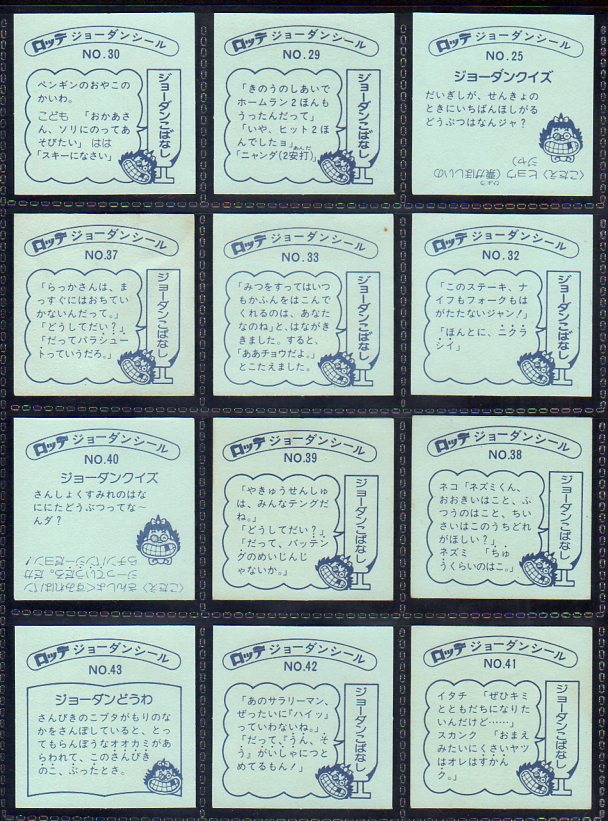 ロッテ ジョーダンシール
NO.30
ジョーダンこばなし
ペンギンのおやこの
かいわ。
こども 「おかあさ
ん、ソリにのってあ
そびたい」 はは
「スキーになさい」
ロッテ ジョーダンシール
NO.29
ジョーダンこばなし
「きのうのしあいで
ホームラン2ほんも
うったんだって」
「いや、ヒット2ほ
んでしたョ」
「ニャンダ(2安打)」
あんだ
ロッテ ジョーダンシール
NO.25
ジョーダンクイズ
だいぎしが、せんきょの
ときにいちばんほしがる
どうぶつはなんジャ?
〈こたえ〉ヒョウ(票がほしいの
ひょう
ジャ)
ロッテ ジョーダンシール
NO.37
ジョーダンこばなし
「らっかさんは、ま
っすぐにはおちてい
かないんだって。」
「どうしてだい?」
「だってパラシュー
トっていうだろ。」
ロッテ ジョーダンシール
NO.33
ジョーダンこばなし
「みつをすってはいつ
もかふんをはこんで
くれるのは、あなた
なのね」と、はながき
ききました。すると、
「ああチョウだよ。」
とこたえました。
ロッテ ジョーダンシール
NO.32
ジョーダンこばなし
「このステーキ、ナ
イフもフォークもは
がたたないジャン!」
「ほんとに、ニクラ
シイ」
ロッテ ジョーダンシール
NO.40
ジョーダンクイズ
さんしょくすみれのはな
ににたどうぶつってな〜
んダ?
〈こたえ〉さんしょくすみれはパン
ジーっていうだろ。だか
らチンパンジーだヨン!
ロッテ ジョーダンシール
NO.39
ジョーダンこばなし
「やきゅうせんしゅ
は、みんなテングだ
ね。」
「どうしてだい?」
「だって、バッテン
グのめいじんじ
ゃないか。」
ロッテ ジョーダンシール
NO.38
ジョーダンこばなし
ネコ「ネズミくん、
おおきいはこと、ふ
つうのはこと、ちい
さいはこのうちどれ
がほしい?」
ネズミ 「ちゅ
うくらいのはこ。」
ロッテ ジョーダンシール
NO.43
ジョーダンどうわ
さんびきのこブタがもりのな
かをさんぽしていると、とっ
てもらんぼうなオオカミがあ
らわれて、このさんびき
のこ、ぶったとさ。
ロッテ ジョーダンシール
NO.42
ジョーダンこばなし
「あのサラリーマン、
ぜったいに『ハイッ』
っていわないね。」
「だって、『うん、そ
う』がいしゃにつと
めてるもん!」
ロッテ ジョーダンシール
NO.41
ジョーダンこばなし
イタチ 「ぜひキミ
とともだちになりた
いんだけど……」
スカンク 「おまえ
みたいにくさいヤツ
はオレはすかん
ク。」